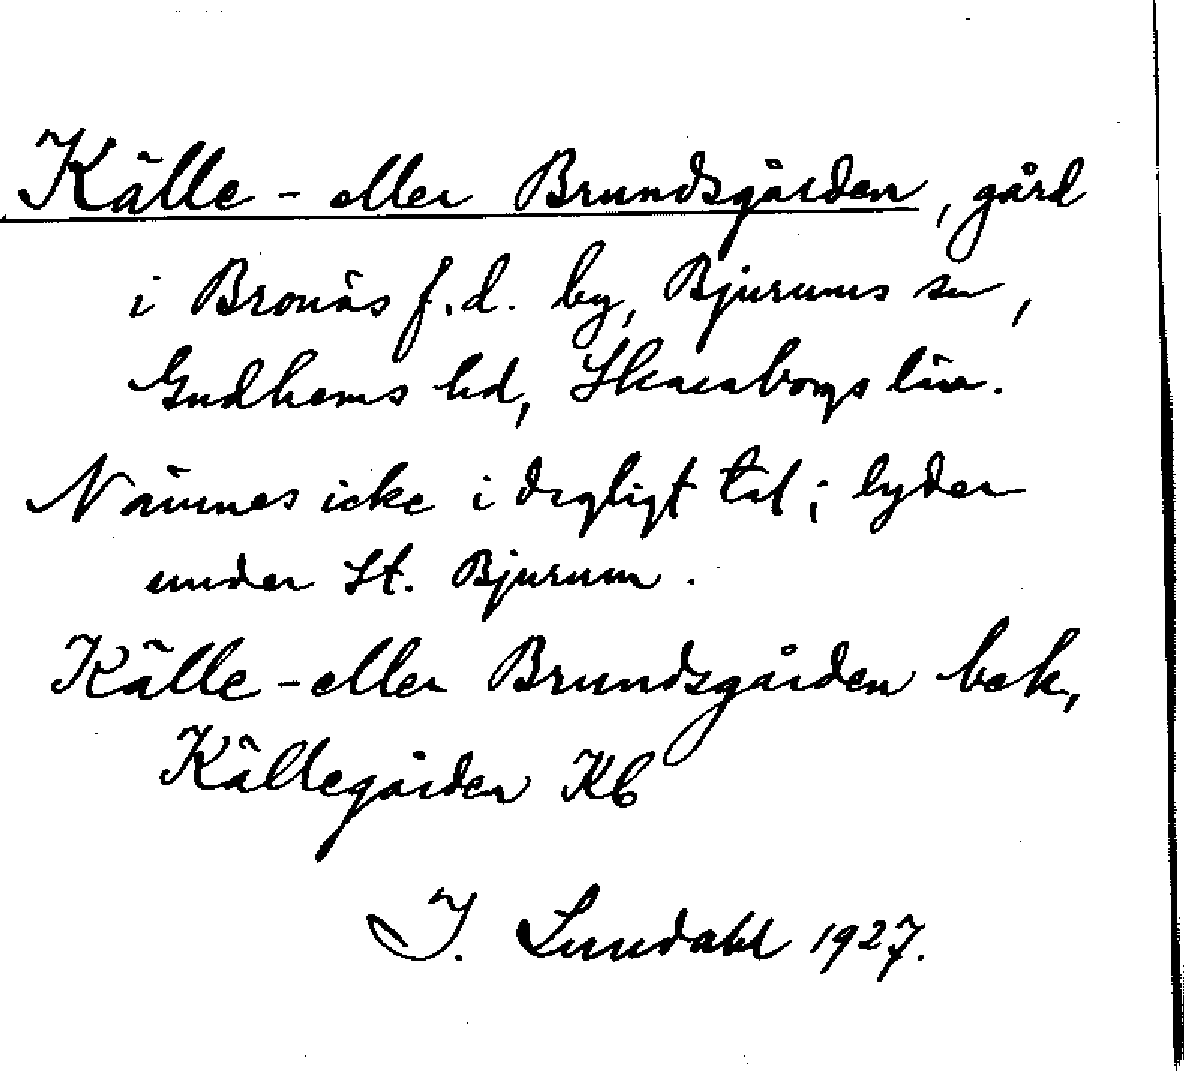 Källe- eller Brundsgården, gård
i Bronäs f.d. by, Bjurums sn,
Gudhems hd, Skaraborgs län.
Nämnes icke i dagligt tal; lyder
under St. Bjurum.
Källe- eller Brundsgården bok,
Källegården Kb
I. Lundahl 1927.